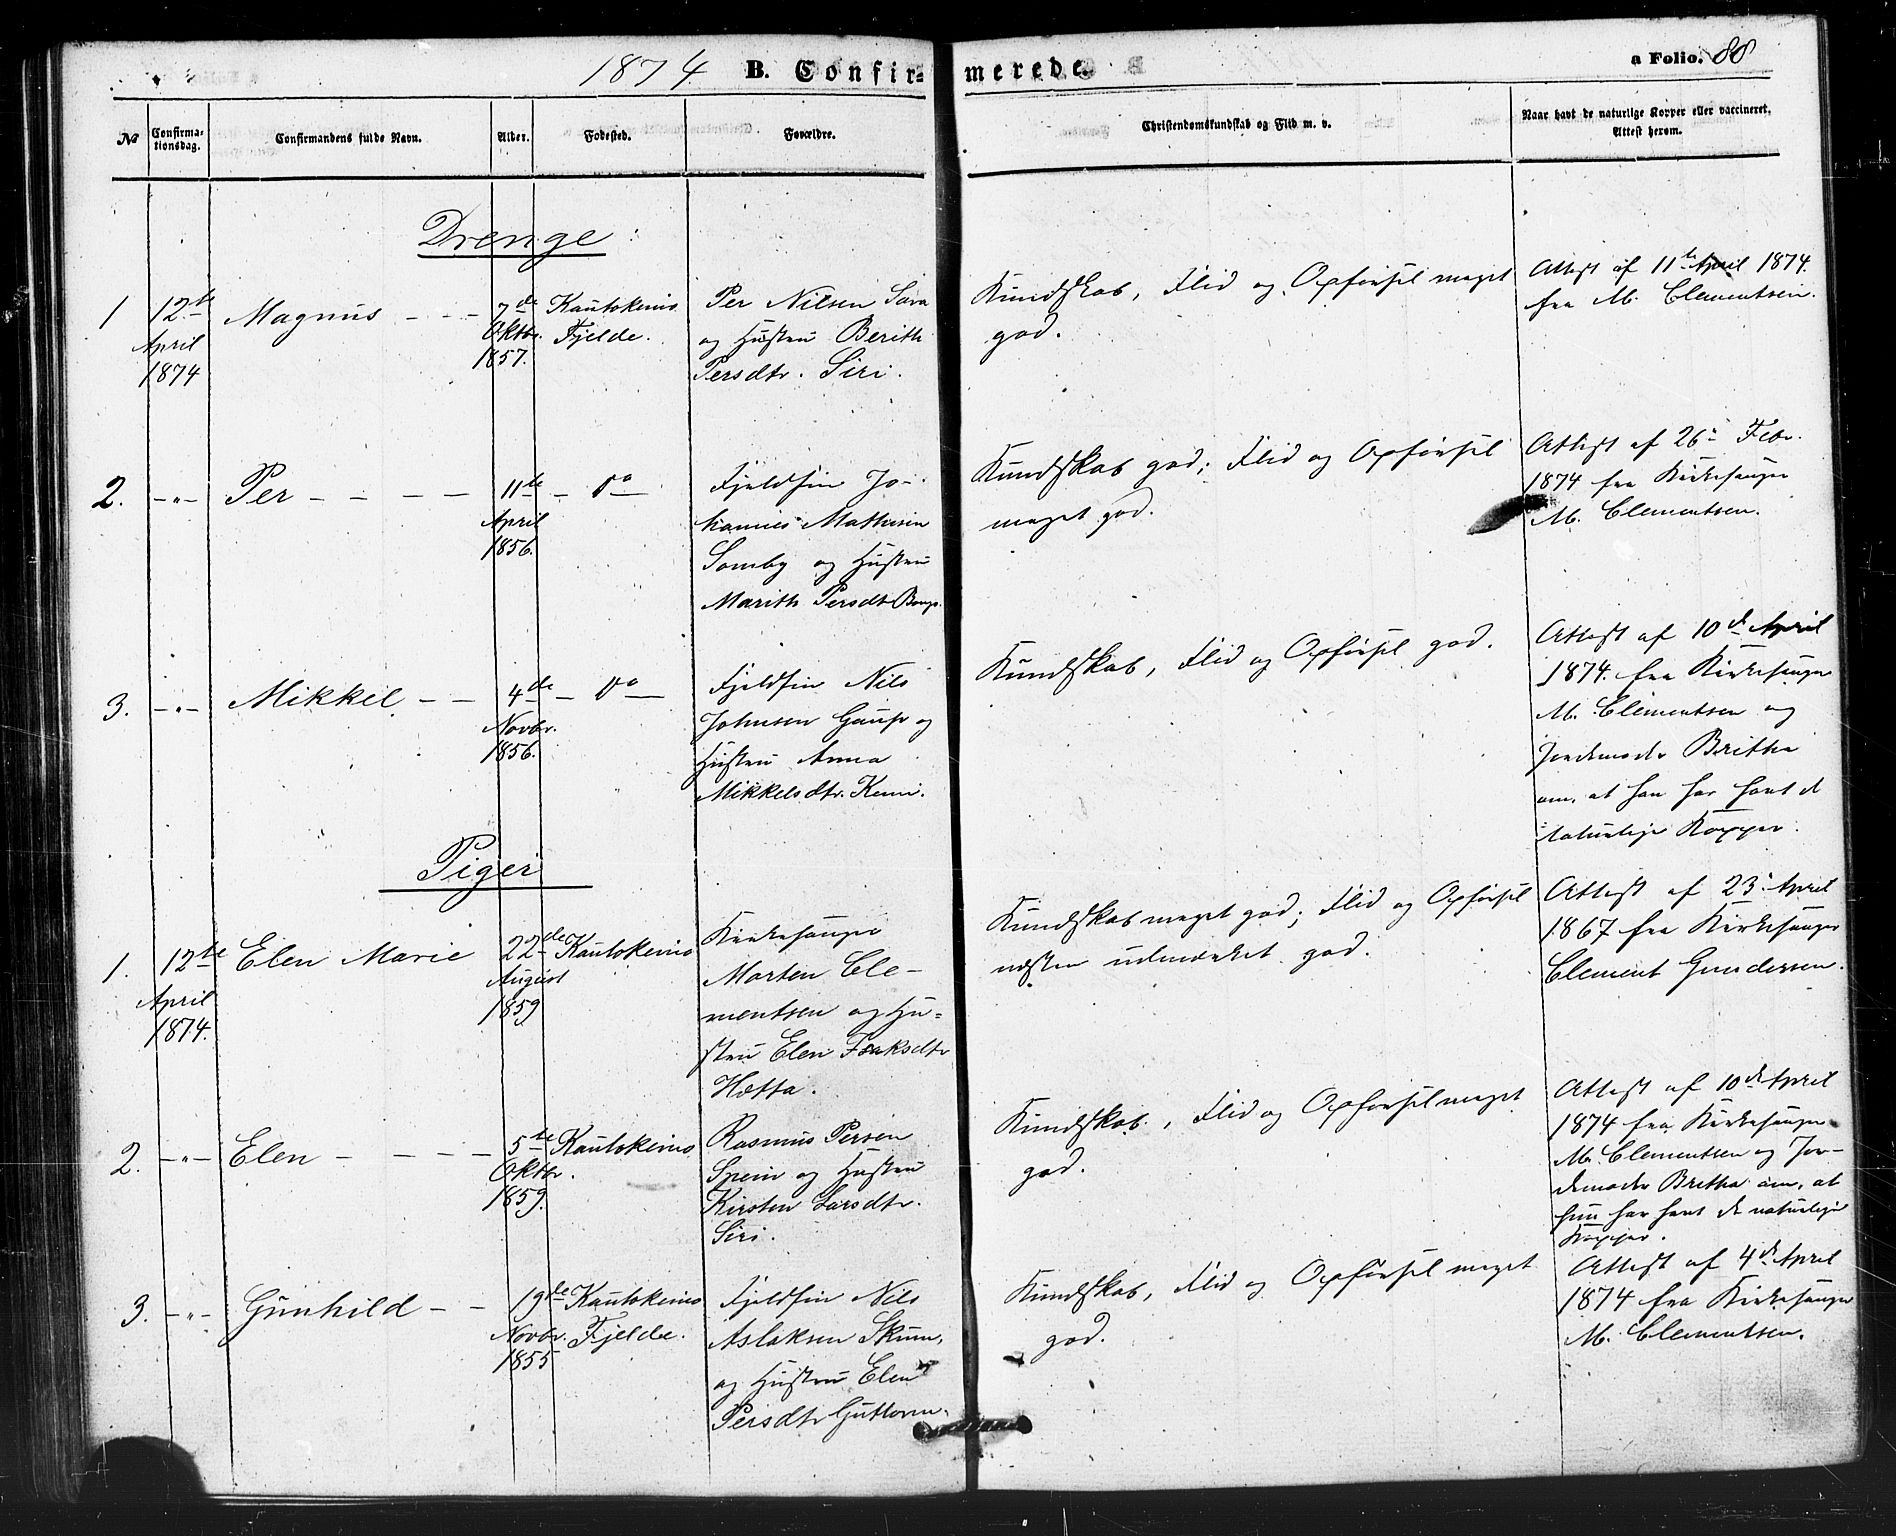 1874 B. Confir- merede. a Folio. 88
No
Confirma-
tionsdag.
Confirmandens fulde Navn.
Alder.
Fødested.
Forældre.
Christendomskundskab og Flid m. v.
Naar havt de naturlige Kopper eller vaccineret,
Attest herom.
Drenge:
1
12te
April
1874
Magnus
7de
Oktbr.
1857.
Kautokeino
Fjelde.
Per Nilsen Sara
og Hustru Berith
Persdtr. Siri.
Kundskab, Flid og Opførsel meget
god.
Attest af 11te April 1874.
fra M. Clementsen.
2.
-"-
Per
11te
April
1856.
Do
Fjeldfin Jo-
hannes Mathisen
Somby og Hustru
Marith Persdtr
Kundskab god; Flid og Opførsel
meget god.
Attest af 26de Febr.
1874 fra Kirkesanger
M. Clementsen.
3.
-"-
Mikkel
4de
Novbr.
1856.
Do
Fjeldfin Nils
Johnsen Gaup og
Hustru Anna
Mikkelsdtr. Kemi.
Kundskab, Flid og Opførsel god.
Attest af 10de April
1874 fra Kirkesanger
M. Clementsen og
Jordemoder Britha
om, at han har havt de
naturlige Kopper.
Piger
1.
12te
April
1874.
Elen Marie
22de
August
1859
Kautokeino
Kirkesanger
Morten Cle-
mentsen og Hu-
stru Elen Isaksdtr
Hætta.
Kundskab meget god; Flid og Opførsel
næsten udmærket god.
Attest af 23de April
1867 fra Kirkesanger
Clement Gundersen.
2.
-"-
Elen
5te
Oktbr.
1859.
Kautokeino
Rasmus Persen
Spein og Hustru
Kirsten Larsdtr.
Siri.
Kundskab, Flid og Opførsel meget
god.
Attest af 10de April
1874 fra Kirkesanger
M. Clementsen og Jor-
demoder Britha om, at
hun har havt de naturlige
Kopper.
3.
-"-
Gunhild
19de
Novbr.
1855
Kautokeino
Fjelde.
Fjeldfin Nils
Aslaksen Skum,
og Hustru Elen
Persdtr Guttorm.
Kundskab, Flid og Opførsel meget
god.
Attest af 4de April
1874 fra Kirkesanger
M. Clementsen.